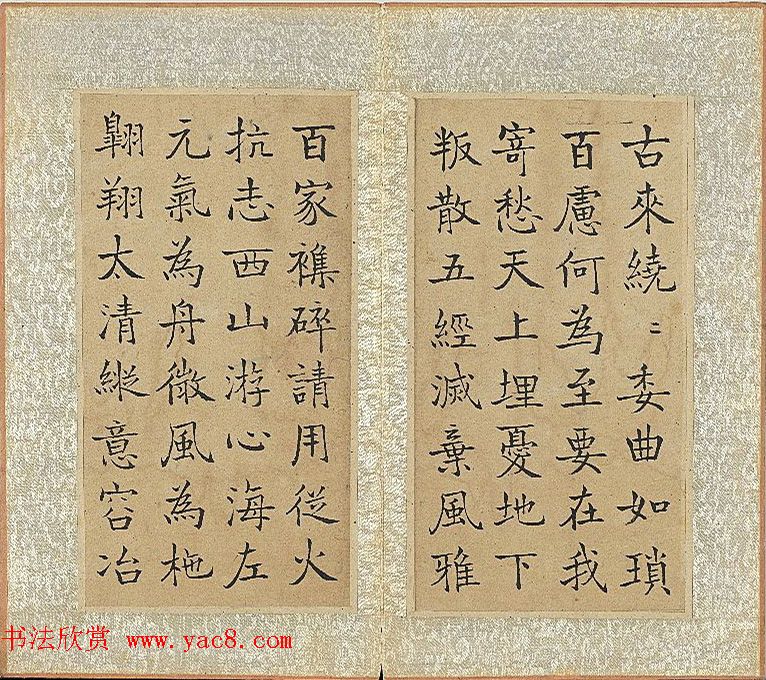 古來繞〻委曲如瑣
百慮何為至要在我
寄愁天上埋憂地下
叛散五經滅棄風雅
百家襍碎請用從火
抗志西山游心海左
元氣為舟微風為柂
翺翔太清縱意容冶
书法欣赏 www.yac8.com